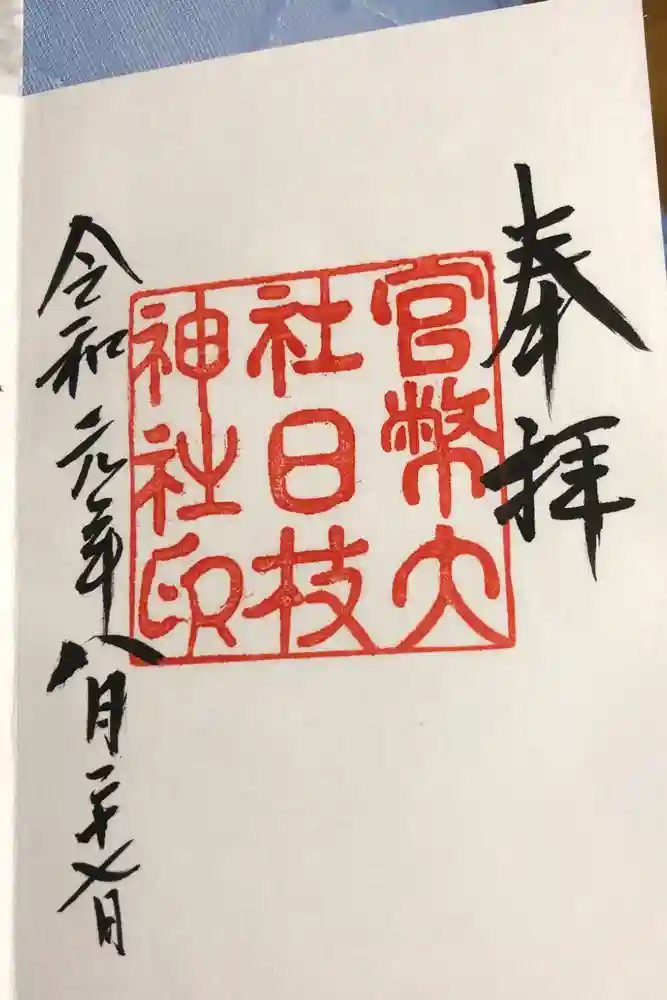 奉拝
官幣大
社日枝
神社印
令和元年八月二十七日